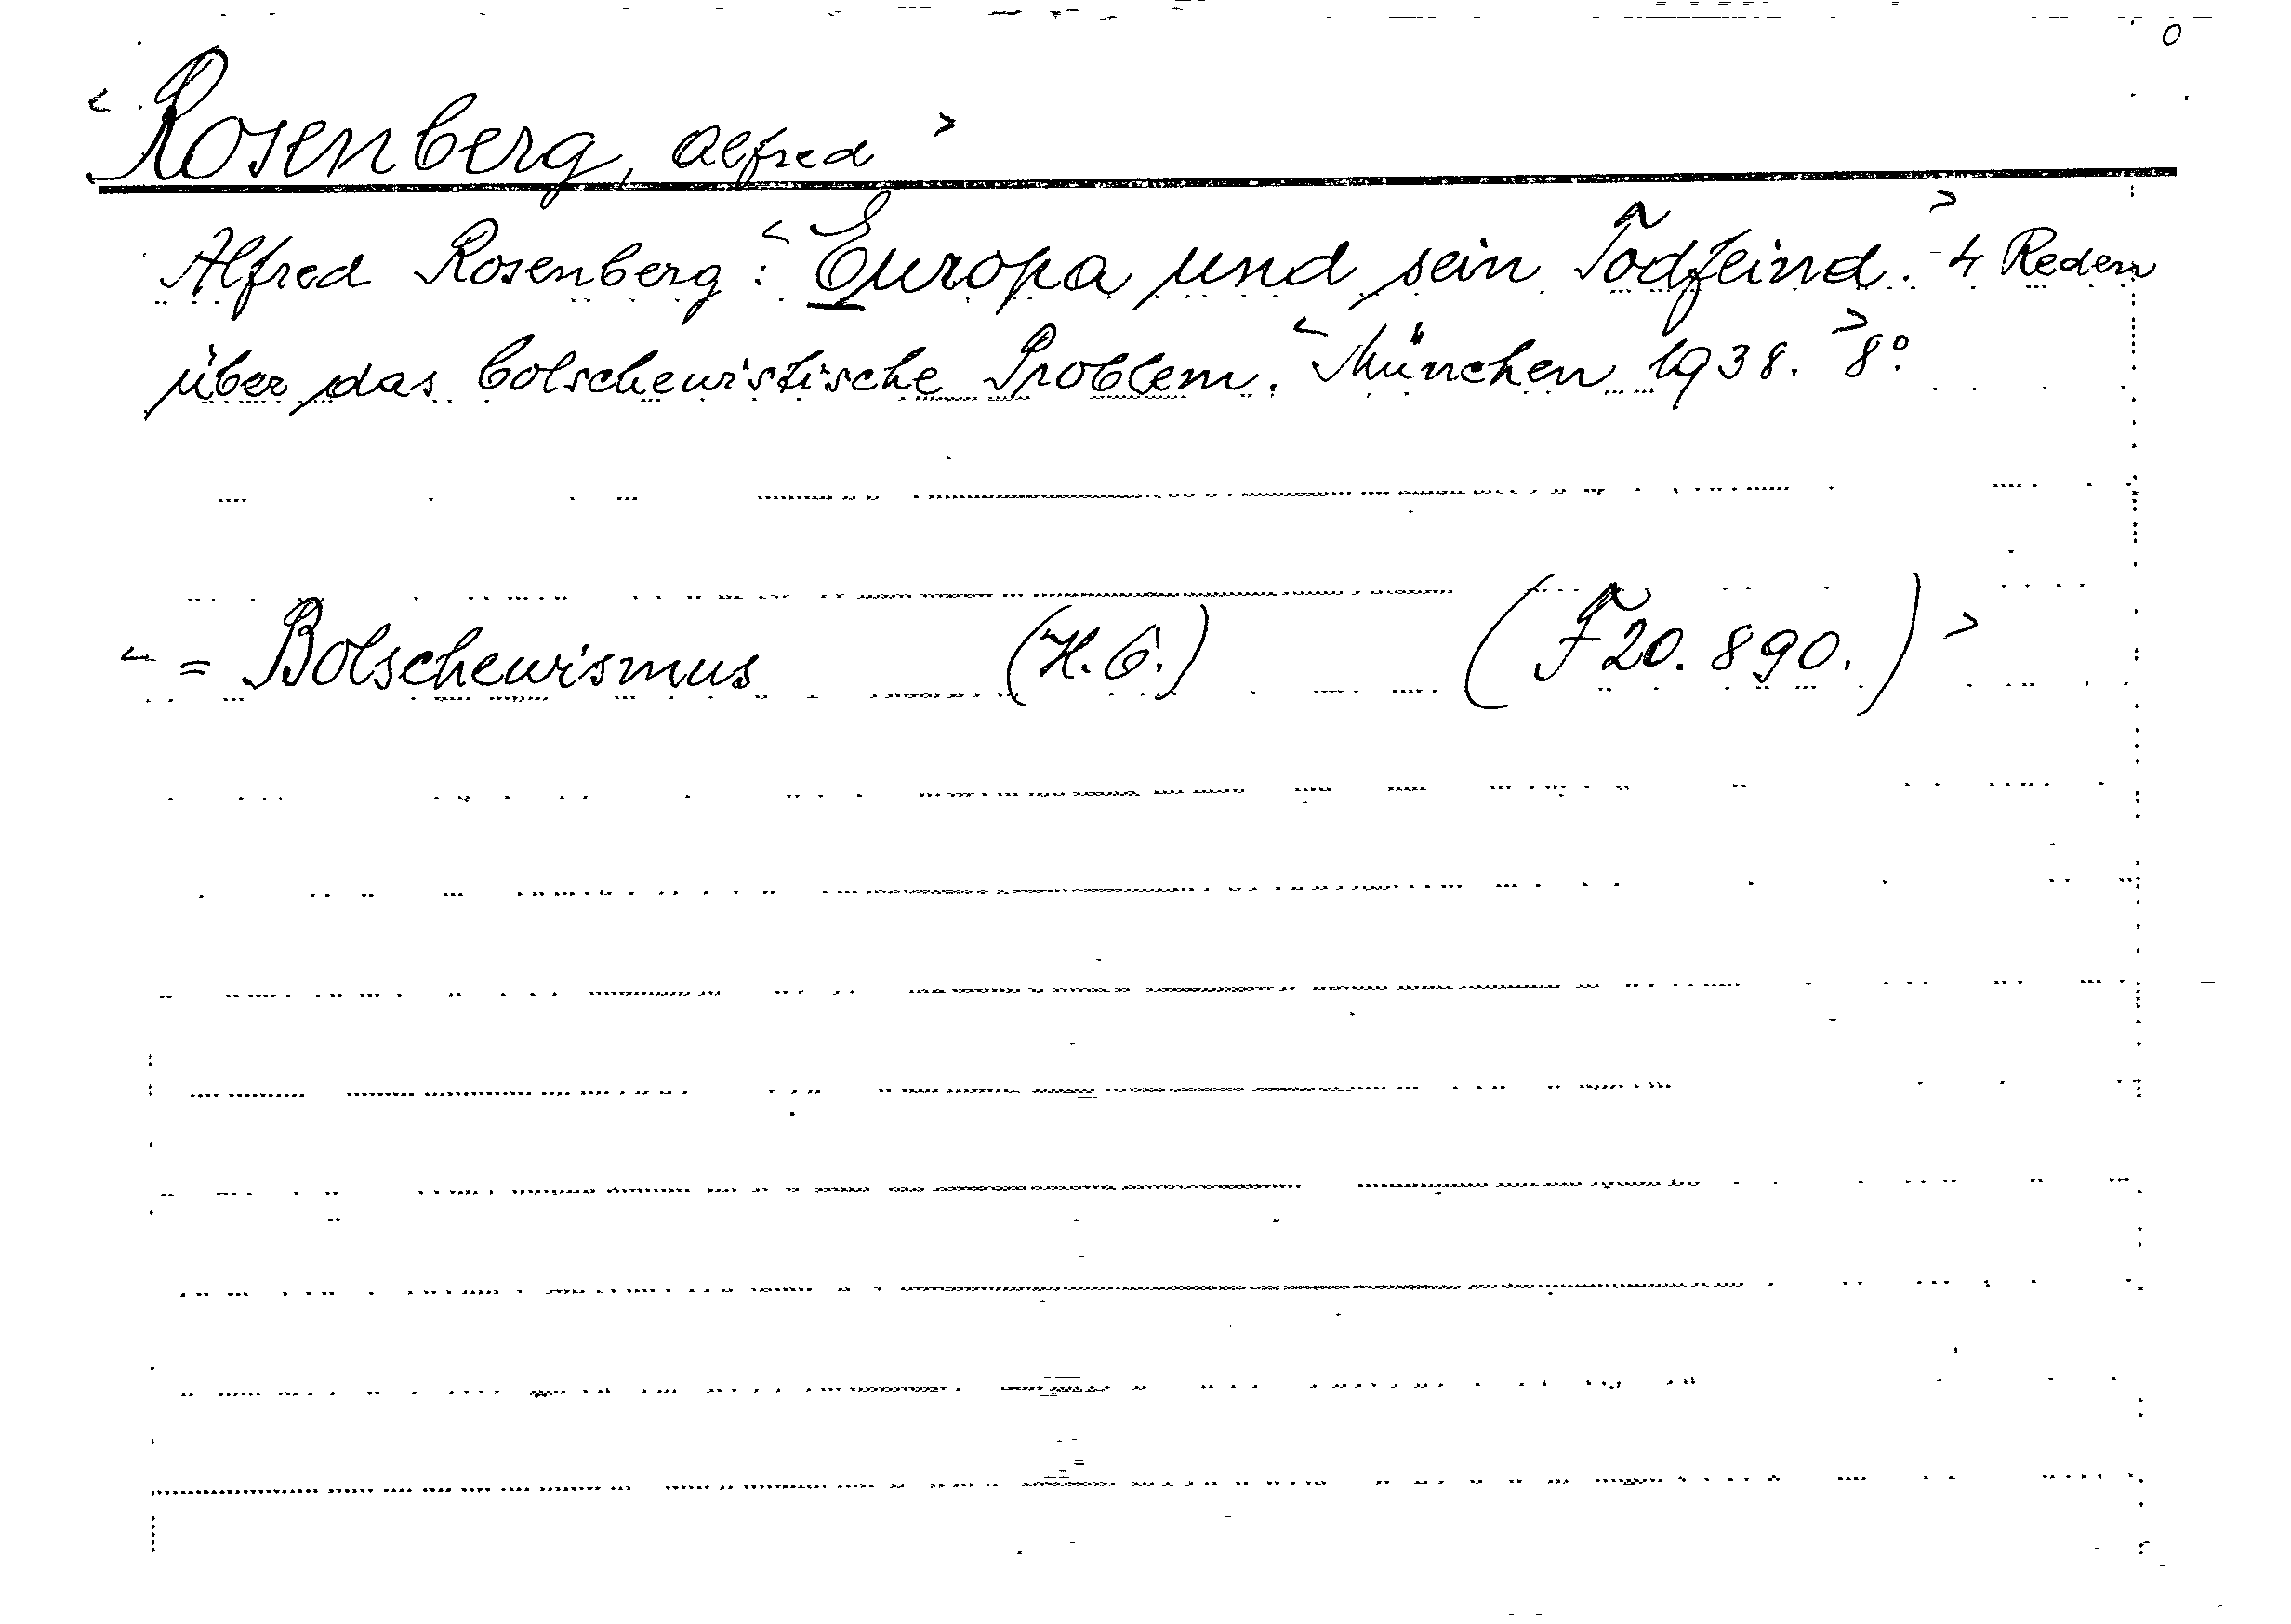 0
< Rosenberg, Alfred >
Alfred Rosenberg: < Europa und sein Todfeind. > 4 Reden
über das bolschewistische Problem. < München 1938. > 8°.
< = Bolschewismus (H. 6.) (F 20.890.) >